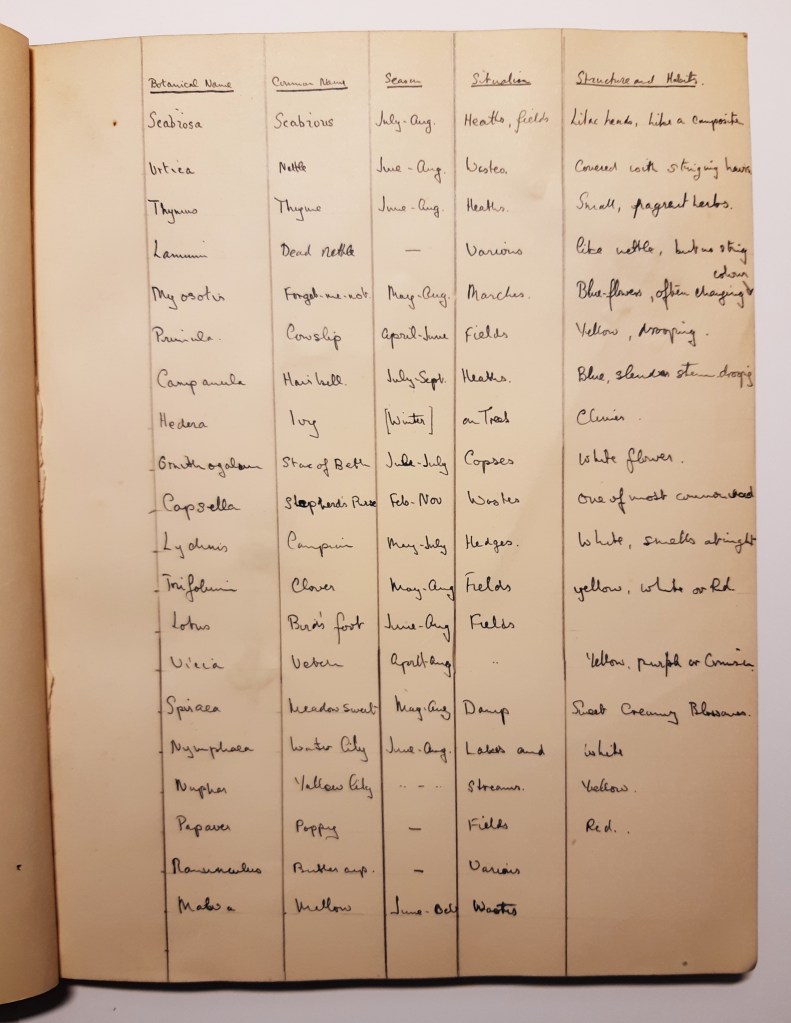 Botanical Name Common Name Season Situation Structure and Habits.
Scabiosa Scabious July-Aug. Heaths, fields Lilac heads, like a composite
Urtica Nettle June-Aug. Wastes. Covered with stinging hairs
Thymus Thyme June-Aug. Heaths. Small, fragrant herbs.
Lamium Dead Nettle — Various like nettle, but no sting
Myosotis Forget-me-not May-Aug. Marshes. Blue-flowers, often changing colour
Primula. Cowslip April-June Fields Yellow, drooping.
Campanula Harebell. July-Sept. Heaths. Blue, slender stem drooping
Hedera Ivy [Winter] on Trees Climber.
Ornithogalum Star of Beth June-July Copses White flower.
Capsella Shepherd's Purse Feb-Nov Wastes one of most common weed
Lychnis Campion May-July Hedges. White, smells at night
Trifolium Clover May-Aug Fields yellow, white or Red
Lotus Bird's foot June-Aug Fields
Vicia Vetch April-Aug " Yellow, purple or Crimson
Spiraea Meadow sweet May-Aug Damp Sweet Creamy Blossoms.
Nymphaea Water Lily June-Aug. Lakes and white
Nuphar Yellow Lily " - " Streams. Yellow.
Papaver Poppy — Fields Red.
Ranunculus Buttercup. — Various
Malva Mallow June-Oct Wastes